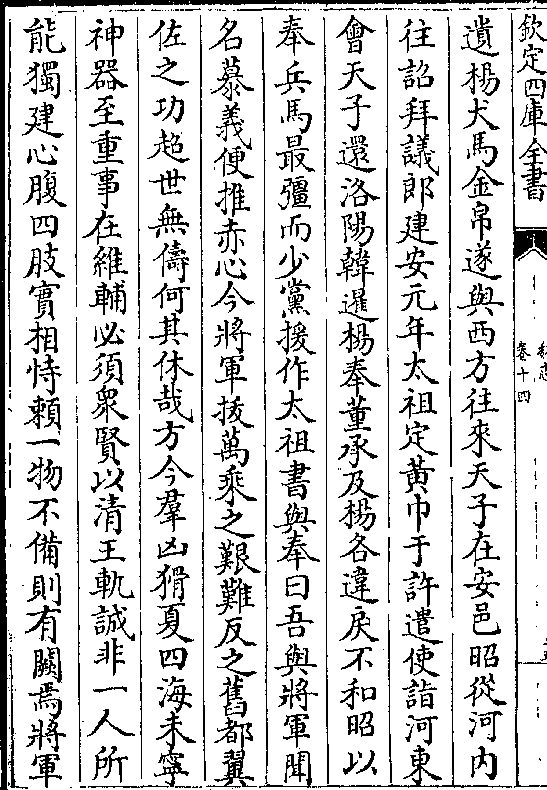 欽定四庫全書
卷十四
遺楊犬馬金帛遂與西方往來天子在安邑昭從河内
往詔拜議郎建安元年太祖定黃巾于許遣使詣河東
會天子還洛陽韓暹楊奉董承及楊各違戾不和昭以
奉兵馬最彊而少黨援作太祖書與奉曰吾與將軍聞
名慕義便推赤心今將軍拔萬乘之艱難反之舊都翼
佐之功超世無儔何其休哉方今羣凶猾夏四海未寧
神器至重事在維輔必須衆賢以清王軌誠非一人所
能獨建心腹四肢實相恃賴一物不備則有闕焉將軍